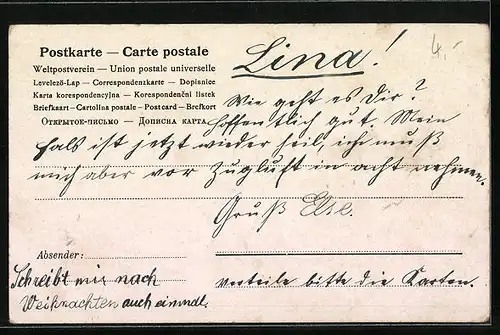 Postkarte — Carte postale
Weltpostverein — Union postale universelle
Levelező-Lap — Correspondenzkarte — Dopisnice
Karta korespondencyjna — Korespondenční listek
Briefkaart — Cartolina postale — Postcard — Brefkort
Открытое-письмо — Дописна карта
4,-
Lina!
Wie geht es Dir?
Hoffentlich gut. Mein
Hals ist jetzt wieder heil, ich muß
mich aber vor Zugluft in acht nehmen.
Gruß Else.
Absender:
Schreibt mir nach
Weihnachten auch einmal.
Verteile bitte die Karten.